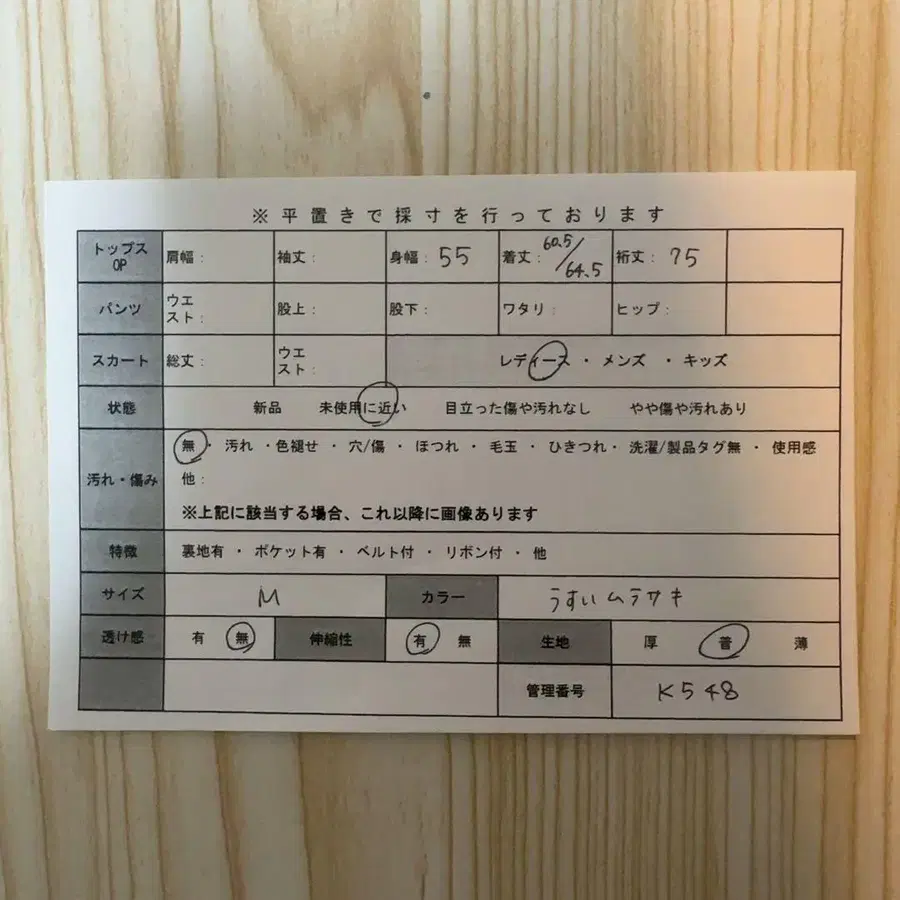 ※平置きで採寸を行っております
トップス OP 肩幅： 袖丈： 身幅：55 着丈：60.5/64.5 裄丈：75
パンツ ウエスト： 股上： 股下： ワタリ： ヒップ：
スカート 総丈： ウエスト： レディース ・ メンズ ・ キッズ
状態 新品 未使用に近い 目立った傷や汚れなし やや傷や汚れあり
汚れ・傷み 無・ 汚れ ・色褪せ ・ 穴/傷 ・ ほつれ ・ 毛玉 ・ ひきつれ・ 洗濯/製品タグ無 ・ 使用感
他：
※上記に該当する場合、これ以降に画像あります
特徴 裏地有 ・ ポケット有 ・ ベルト付 ・ リボン付 ・ 他
サイズ M カラー うすいムラサキ
透け感 有 無 伸縮性 有 無 生地 厚 普 薄
管理番号 K548